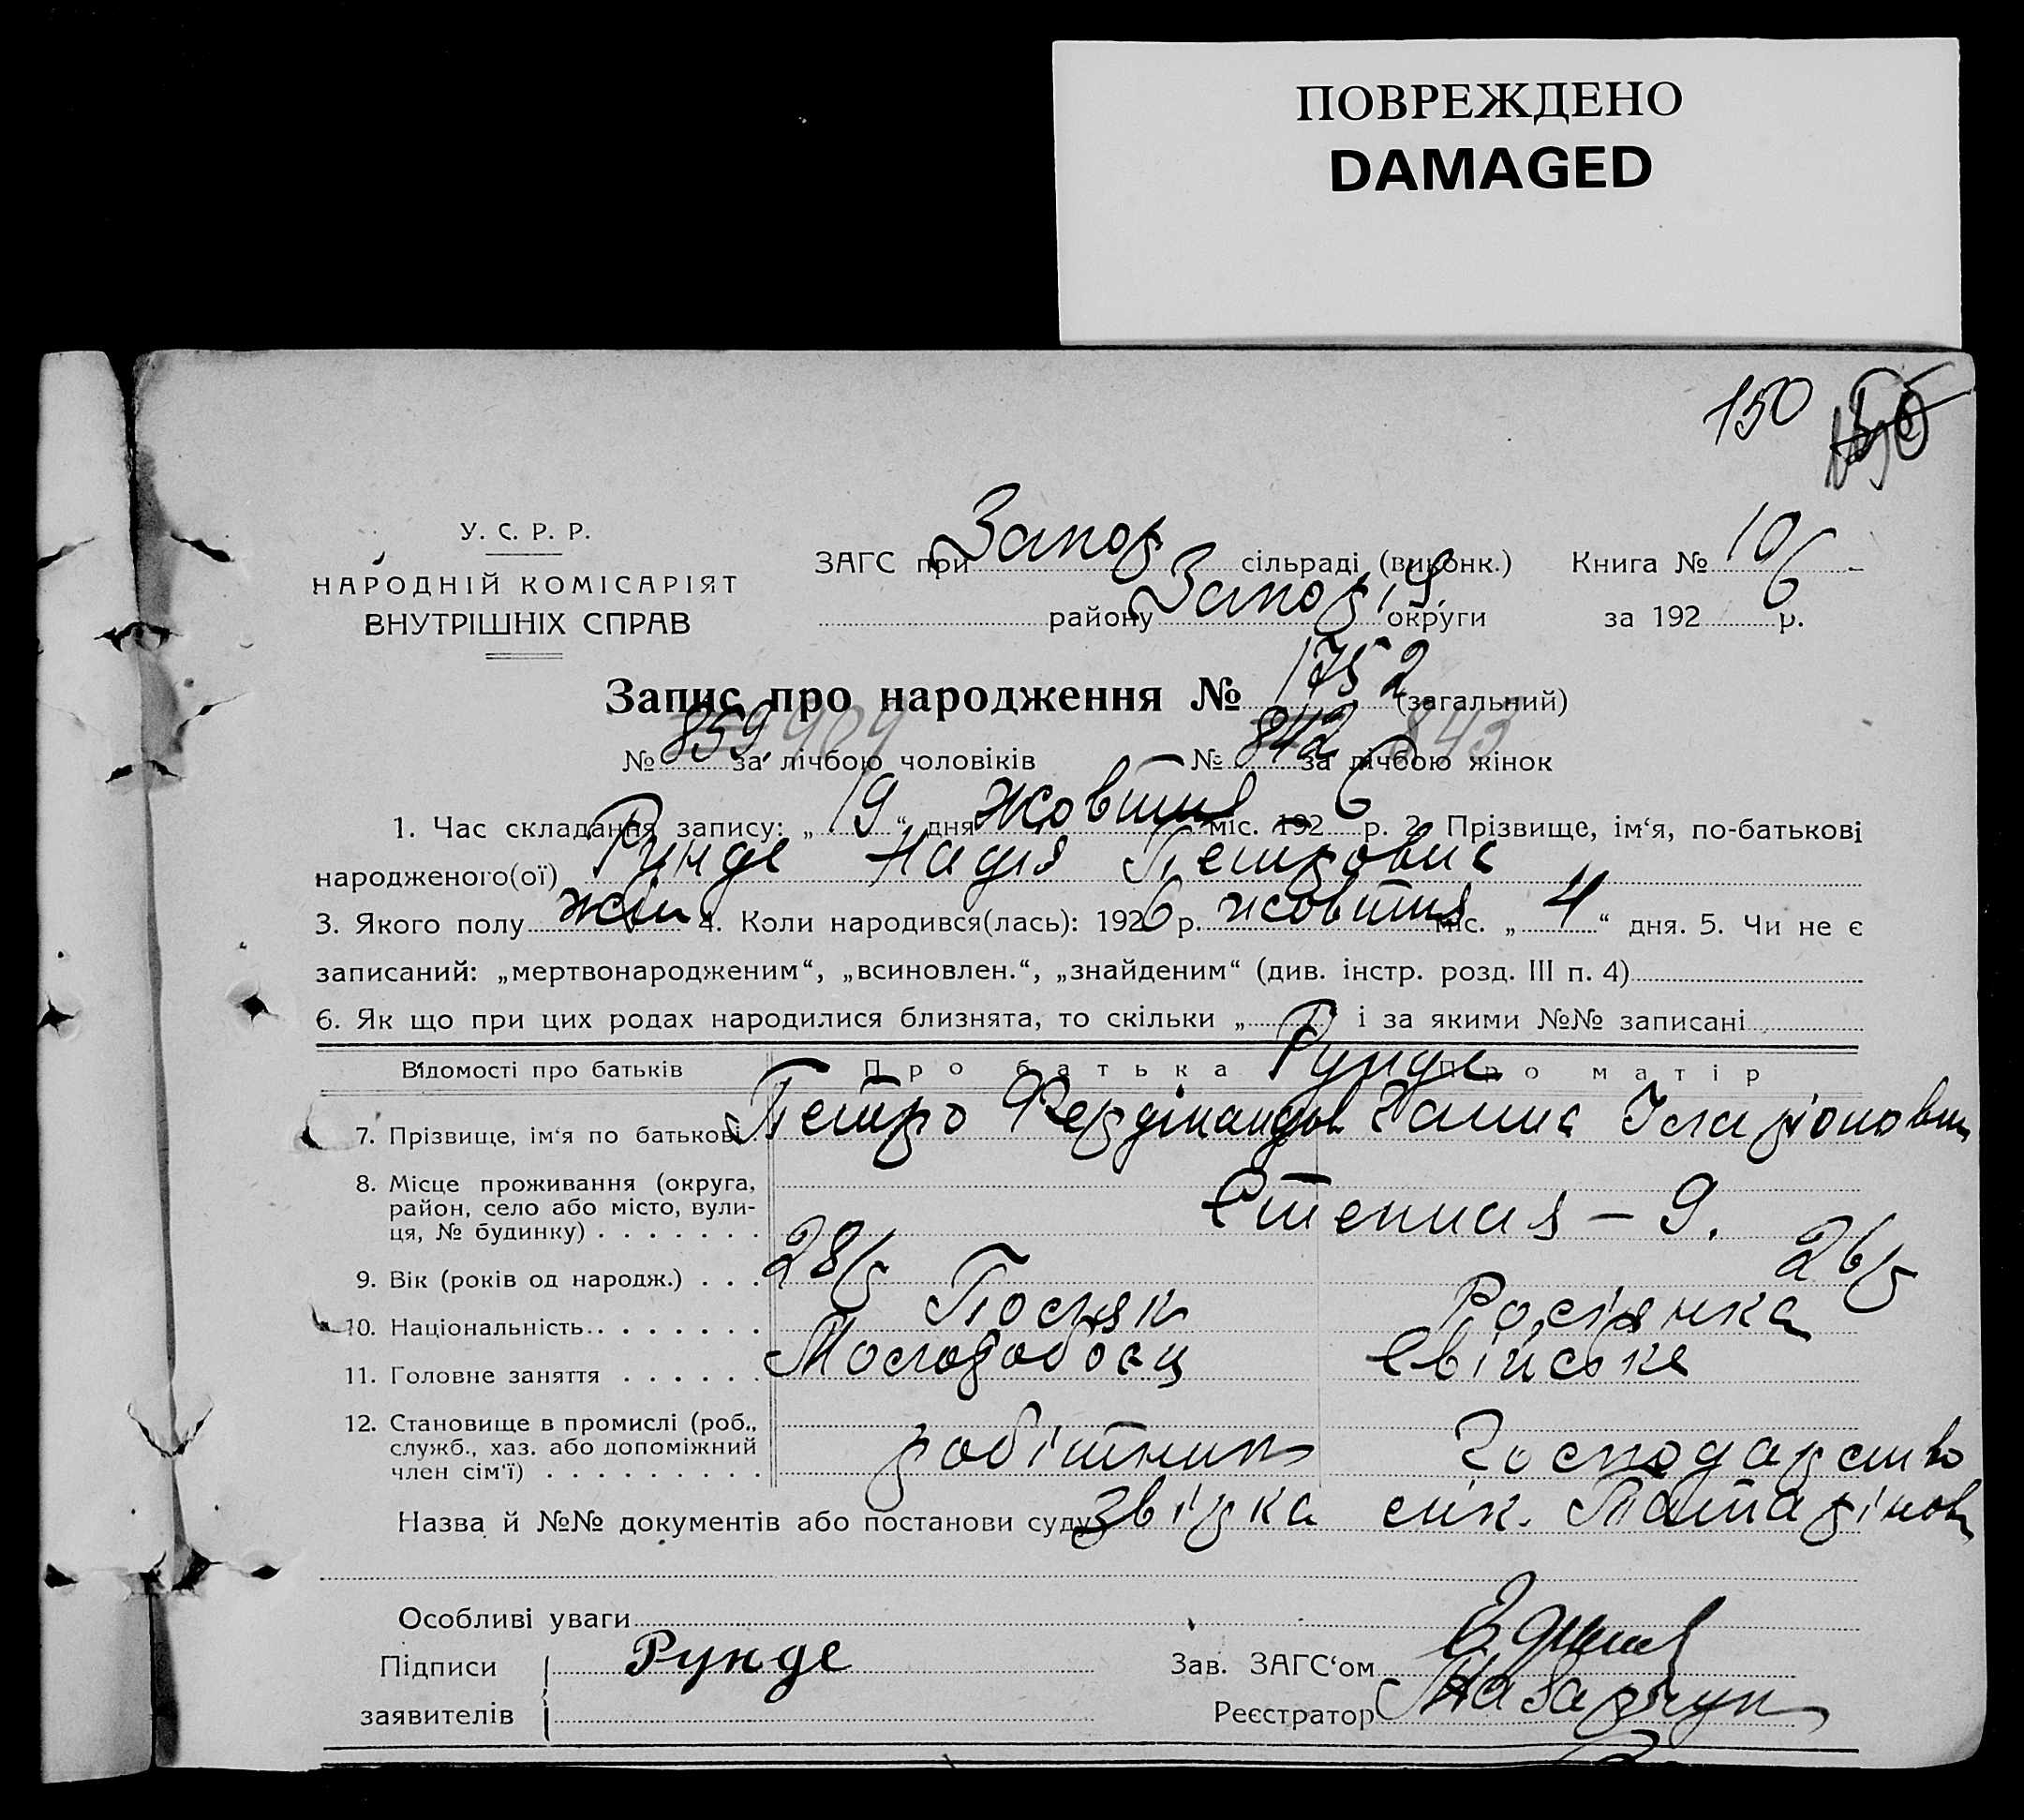 ПОВРЕЖДЕНО
DAMAGED
150
У. С. Р. Р.
НАРОДНІЙ КОМІСАРІЯТ
ВНУТРІШНІХ СПРАВ
ЗАГС при Запор сільраді (виконк.) Книга № 10
району Запоріз округи за 1926 р.
Запис про народження № 1752 (загальний)
№ 859 909 за лічбою чоловіків № 842 843 за лічбою жінок
1. Час складання запису: „19“ дня жовтня міс. 1926 р. 2. Прізвище, ім‘я, по-батькові
народженого(ої) Рунде Надія Петровна
3. Якого полу жін 4. Коли народився(лась): 1926 р. жовтня міс. „4“ дня. 5. Чи не є
записаний: „мертвонародженим“, „всиновлен.“, „знайденим“ (див. інстр. розд. III п. 4)
6. Як що при цих родах народилися близнята, то скільки „ і за якими №№ записані
Відомості про батьків Про батька Про матір
Рунде
7. Прізвище, ім‘я по батькові Петро Фердінандов Ганна Іларіоновн
8. Місце проживання (округа,
район, село або місто, вули-
ця, № будинку) Степная – 9.
9. Вік (років од народж.) 28/5 26/5
10. Національність Посяк Росіянка
11. Головне заняття Молотобоєц Свійське
12. Становище в промислі (роб.,
служб., хаз. або допоміжний
член сім‘ї) робітник господарство
Назва й №№ документів або постанови суду звірка сик. Татарінов
Особливі уваги
Підписи Рунде Зав. ЗАГС‘ом
заявителів Реєстратор Назарчук